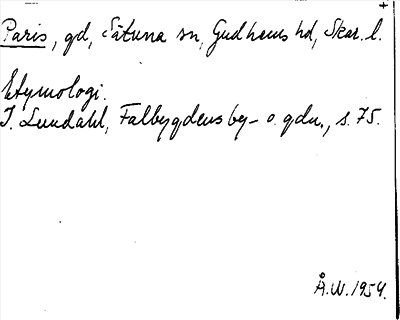 Paris, gd, Sätuna sn, Gudhems hd, Skar. l.
Etymologi.
I. Lundahl, Falbygdens by- o. gdn., s. 75.
Å.W. 1954.